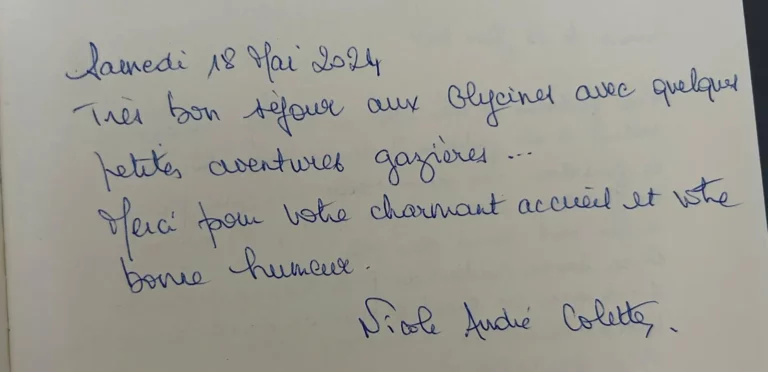 Samedi 18 Mai 2024
Très bon séjour aux Glycines avec quelques
petites aventures gazières...
Merci pour votre charmant accueil et votre
bonne humeur.
Nicole André Colette.